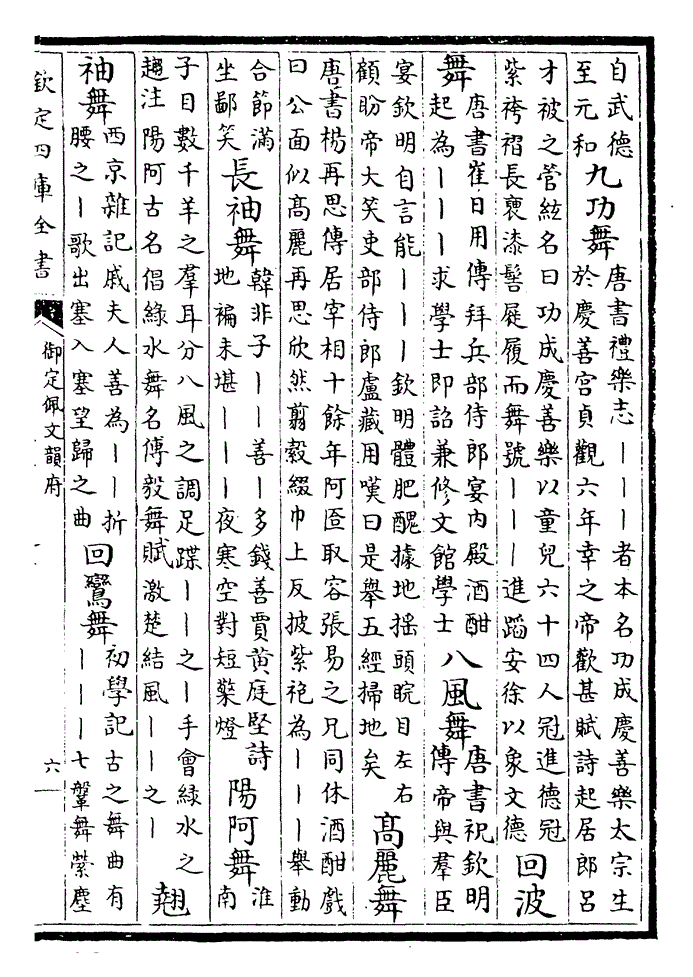 自武德
至元和
九功舞
唐書禮樂志｜｜｜者本名功成慶善樂太宗生
於慶善宮貞觀六年幸之帝歡甚賦詩起居郎呂
才被之管絃名曰功成慶善樂以童兒六十四人冠進德冠
紫袴褶長褎漆髻屣履而舞號｜｜｜進蹈安徐以象文德
回波
舞
唐書崔日用傳拜兵部侍郎宴内殿酒酣
起為｜｜｜求學士即詔兼修文館學士
八風舞
唐書祝欽明
傳帝與羣臣
宴欽明自言能｜｜｜欽明體肥醜據地搖頭睆目左右
顧盼帝大笑吏部侍郎盧藏用嘆曰是舉五經掃地矣
髙麗舞
唐書楊再思傳居宰相十餘年阿匼取容張易之兄同休酒酣戲
曰公面似髙麗再思欣然翦縠綴巾上反披紫袍為｜｜｜舉動
合節滿
坐鄙笑
長袖舞
韓非子｜｜善｜多錢善賈黄庭堅詩
地褊未堪｜｜｜夜寒空對短檠燈
陽阿舞
淮
南
子目數千羊之羣耳分八風之調足蹀｜｜之｜手會緑水之
趨注陽阿古名倡緑水舞名傅毅舞賦激楚結風｜｜之｜
翹
袖舞
西京雜記戚夫人善為｜｜折
腰之｜歌出塞入塞望歸之曲
回鸞舞
初學記古之舞曲有
｜｜｜七鞶舞縈塵
欽定四庫全書
御定佩文韻府
六